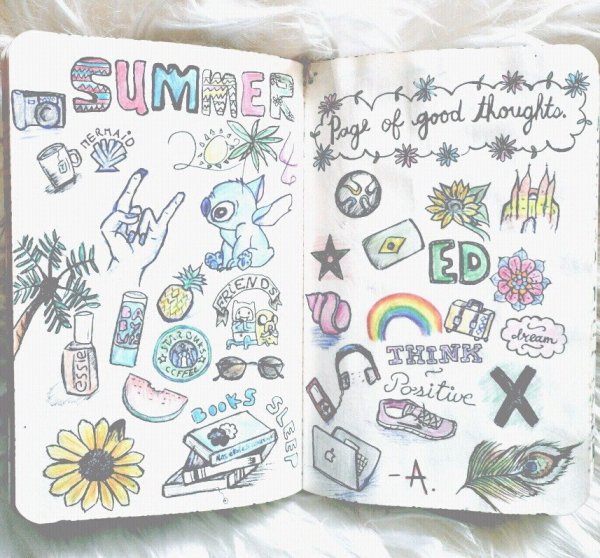 SUMMER
MERMAID
FRIENDS
BABY
LIPS
essie
COFFEE
BOOKS
SLEEP
Page of good thoughts.
ED
dream
THINK
Positive
X
-A.